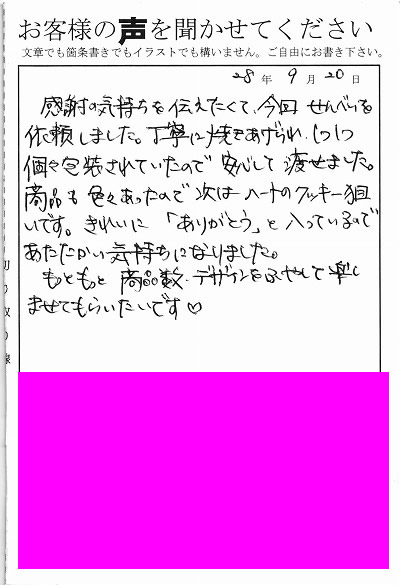 お客様の声を聞かせてください
文章でも箇条書きでもイラストでも構いません。ご自由にお書き下さい。
28年 9月 20日
感謝の気持ちを伝えたくて、今回 せんべいを
依頼しました。丁寧に焼きあげられ、1つ1つ
個々包装されていたので 安心して 渡せました。
商品も 色々あったので 次は ハートのクッキー狙
いです。きれいに 「ありがとう」と 入っているので
あたたかい気持ちになりました。
もともと 商品数・デザインをふやして 楽し
ませてもらいたいです♡
切り取り線